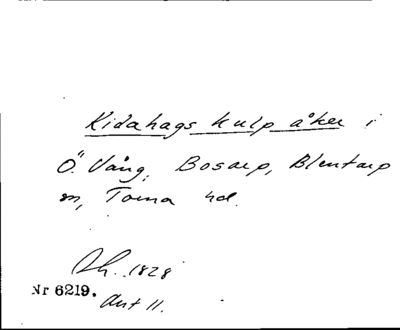 Kidahags kulp åker i
Ö. Vång, Bosarp, Blentarp
sn, Torna hd.
Sh. 1828
Nr 6219.
Akt 11.